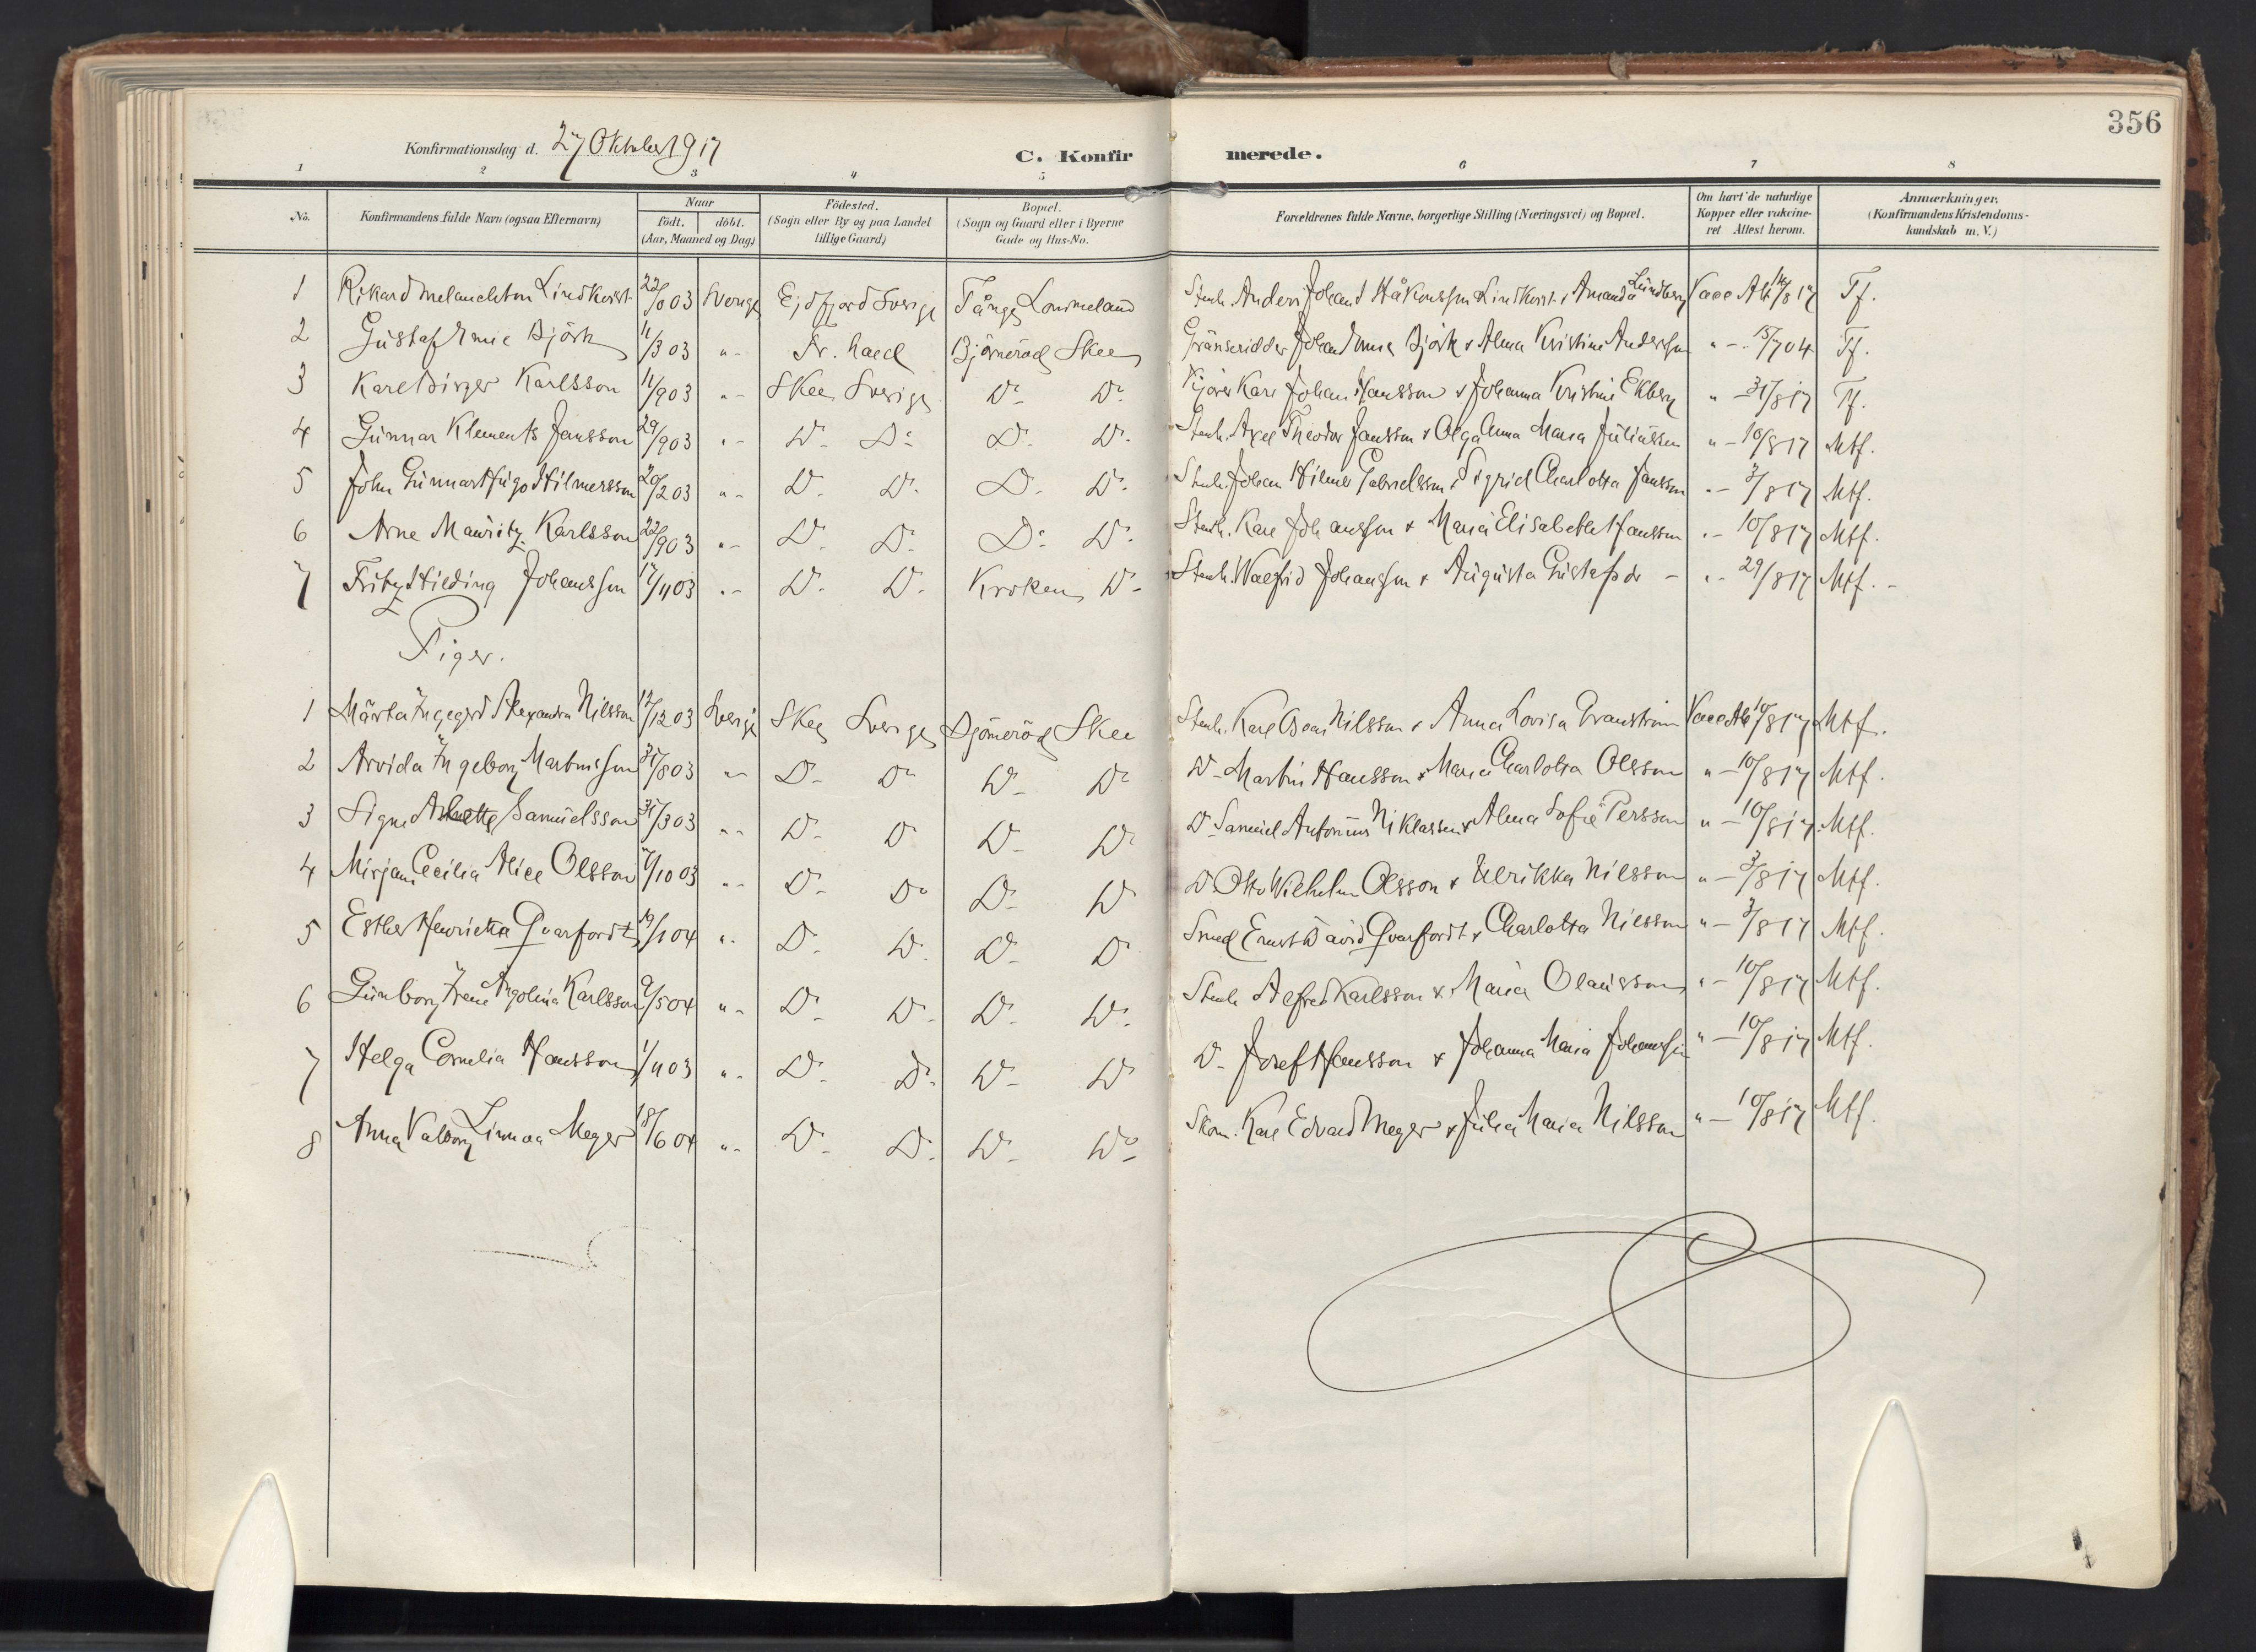 356
Konfirmationsdag d. 27 Oktober 1917
C. Konfirmerede.
1 2 3 4 5 6 7 8
No. Konfirmandens fulde Navn (ogsaa Efternavn) Naar födt. döbt. (Aar, Maaned og Dag) Födested. (Sogn eller By og paa Landet tillige Gaard) Bopæl. (Sogn og Gaard eller i Byerne Gade og Hus-No. Forældrenes fulde Navne, borgerlige Stilling (Næringsvei) og Bopæl. Om havt de naturlige Kopper eller vakcineret Attest herom. Anmærkninger. (Konfirmandens Kristendomskundskab m. V.)
1 Rikard Melanchton Lindkvist 22/8 03 Sverige Ejdfjord Sverige Tånge Lommeland Stenh. Anders Johan Håkonsson Lindkvist & Amanda Lundberg Vacc Att 14/8 17 Tf.
2 Gustaf Emil Björk 11/3 03 " - Fr. hald Björneröd Skee Gränseridder Johan Emil Björk & Alma Kristine Andersson " - 15/7 04 Tf.
3 Karl Birger Karlsson 11/9 03 " - Skee Sverige Do Do Kjörer Karl Johan Hansson & Johanna Kristine Ekberg " - 31/8 17 Tf.
4 Gunnar Klements Jansson 29/9 03 " - Do Do Do Do Stenh. Axel Theodor Jansson & Olga Anna Maria Juliussen " - 10/8 17 Mtf.
5 John Gunnar Hugo Hilmersson 20/2 03 " - Do Do Do Do Stenh. Johan Hilmer Gabrielsson & Sigrid Charlotta Jansson " - 3/8 17 Mtf.
6 Arne Mauritz Karlsson 22/9 03 " - Do Do Do Do Stenh. Karl Johansson & Maria Elisabeth Hansson " - 10/8 17 Mtf.
7 Fritz Hilding Johansson 17/11 03 " - Do Do Kroken Do Stenh. Walfrid Johansson & Augusta Gustafsdr - " - 29/8 17 Mtf. -
Piger.
1 Märta Ingegerd Alexandra Nilsson 12/12 03 Sverige Skee Sverige Björneröd Skee Stenh. Karl Oscar Nilsson & Anna Lovisa Granström Vacc Att 10/8 17 Mtf.
2 Arvida Ingeborg Martinsson 31/8 03 " - Do Do Do Do Do Martin Hansson & Maria Charlotta Olsson " - 10/8 17 Mtf.
3 Signe Samuelsson 31/3 03 " - Do Do Do Do Do Samuel Antonius Niklasson & Alma Sofie Persson " - 10/8 17 Mtf.
4 Mirjam Cecilia Alice Olsson 7/10 03 " - Do Do Do Do Do Otto Wilhelm Olsson & Ulrikka Nilsson " - 3/8 17 Mtf.
5 Esther Henrietta Qvarfordt 19/1 04 " - Do Do Do Do Smed Ernst David Qvarfordt & Charlotta Nilsson " - 3/8 17 Mtf.
6 Gunborg Irene Angolina Karlsson 9/5 04 " - Do Do Do Do Stenh Alfred Karlsson & Maria Olausson " - 10/8 17 Mtf.
7 Helga Cornelia Hansson 1/11 03 " - Do Do Do Do Do Josef Hansson & Johanna Maria Johansson " - 10/8 17 Mtf.
8 Anna Valborg Linnea Meger 18/6 04 " - Do Do Do Do Skom. Karl Edvard Meger & Julia Maria Nilsson " - 10/8 17 Mtf.